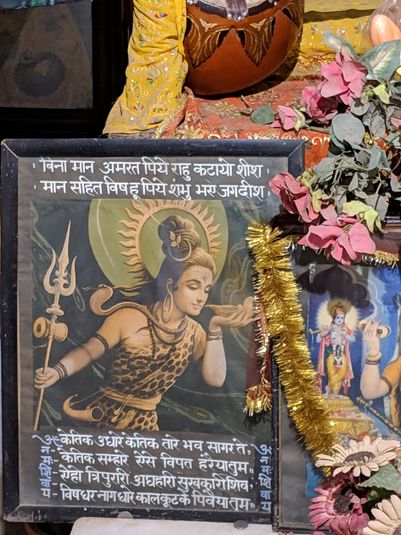 बिना मान अमरत पिये राहु कटायो शीश
मान सहित विष हू पिये शंभु भए जगदीश
ॐ नमः शिवाय
केतिक उधारे केतिक तारे भव सागर ते,
केतिक सम्हारे ऐसे विपत हरैयातुम॥
ऐहो त्रिपुरारी अघहारी सुखकारी शिव,
विषधर नागधारे कालकूट के पिवैया तुम॥
ॐ नमः शिवाय